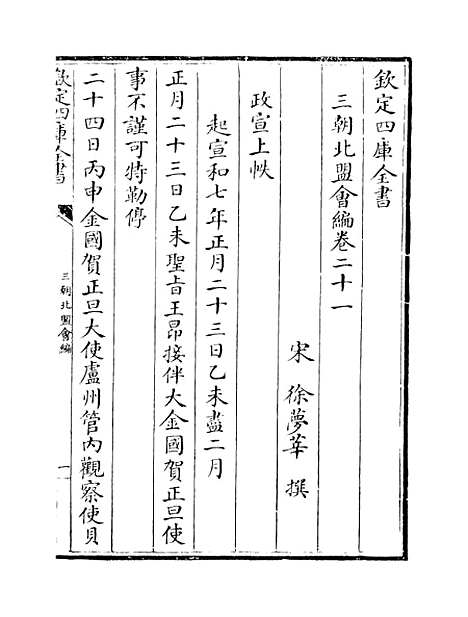 欽定四庫全書
三朝北盟會編卷二十一
宋 徐夢莘 撰
政宣上帙
起宣和七年正月二十三日乙未盡二月
正月二十三日乙未聖旨王昂接伴大金國賀正旦使
事不謹可特勒停
二十四日丙申金國賀正旦大使盧州管内觀察使貝
欽定四庫全書
三朝北盟會編
一